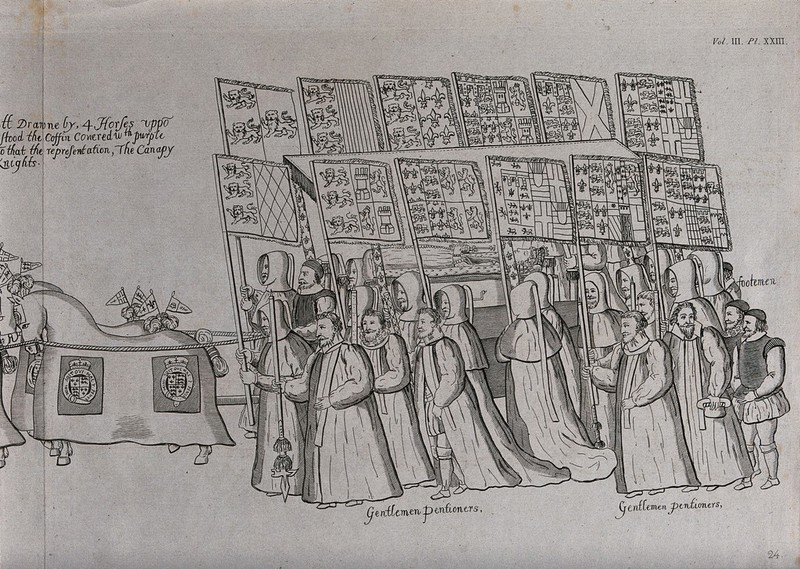 Vol. III. Pl. XXIII.
tt Drawne by, 4 Horses uppō
stood the Coffin Covered wth purple
o that the representation, The Canapy
Knights.
footemen
Gentlemen pentioners.
Gentlemen pentioners,
24.